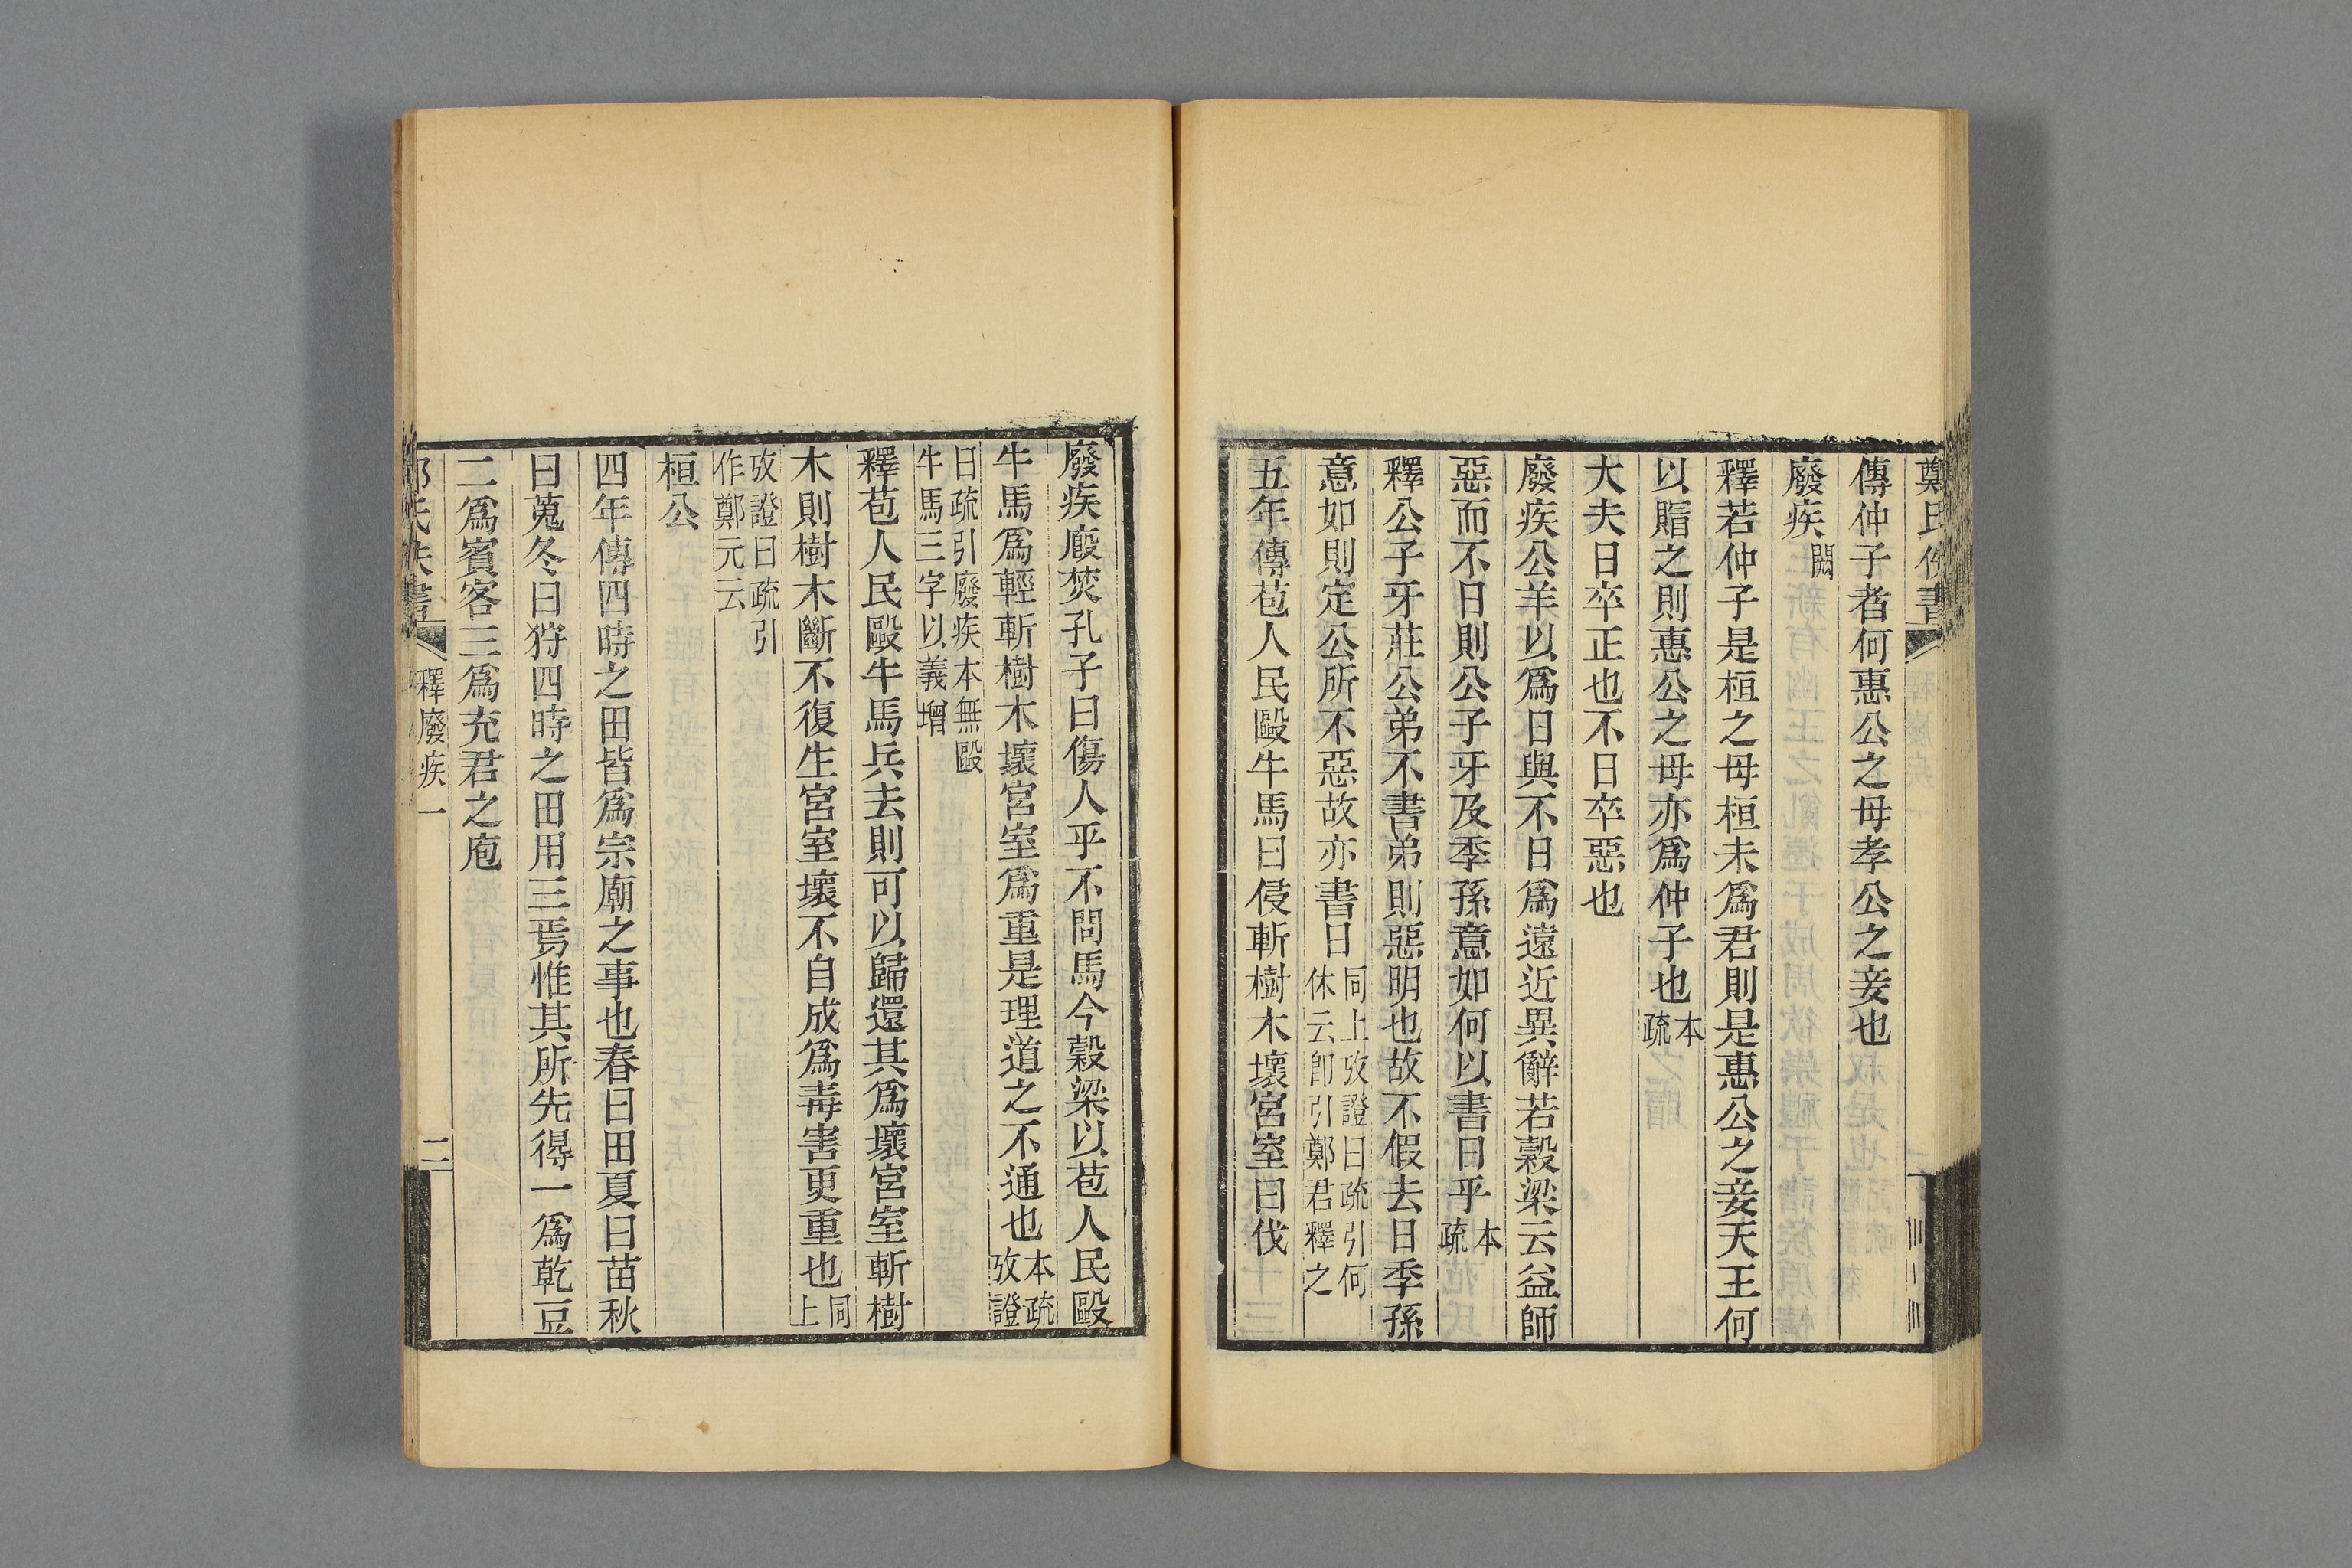 鄭氏佚書
傳仲子者何惠公之母孝公之妾也
廢疾闕
釋若仲子是桓之母桓未爲君則是惠公之妾天王何
以賵之則惠公之母亦爲仲子也本疏
大夫日卒正也不日卒惡也
廢疾公羊以爲日與不日爲遠近異辭若穀梁云益師
惡而不日則公子牙及季孫意如何以書日乎本疏
釋公子牙莊公弟不書弟則惡明也故不假去日季孫
意如則定公所不惡故亦書日同上攷證曰疏引何
休云卽引鄭君釋之
五年傳苞人民毆牛馬曰侵斬樹木壞宮室曰伐
廢疾廄焚孔子曰傷人乎不問馬今穀梁以苞人民毆
牛馬爲輕斬樹木壞宮室爲重是理道之不通也本疏
攷證
曰疏引廢疾本無毆
牛馬三字以義增
釋苞人民毆牛馬兵去則可以歸還其爲壞宮室斬樹
木則樹木斷不復生宮室壞不自成爲毒害更重也同上
攷證曰疏引
作鄭元云
桓公
四年傳四時之田皆爲宗廟之事也春曰田夏曰苗秋
曰蒐冬曰狩四時之田用三焉惟其所先得一爲乾豆
二爲賓客三爲充君之庖
鄭氏佚書 釋廢疾一 二